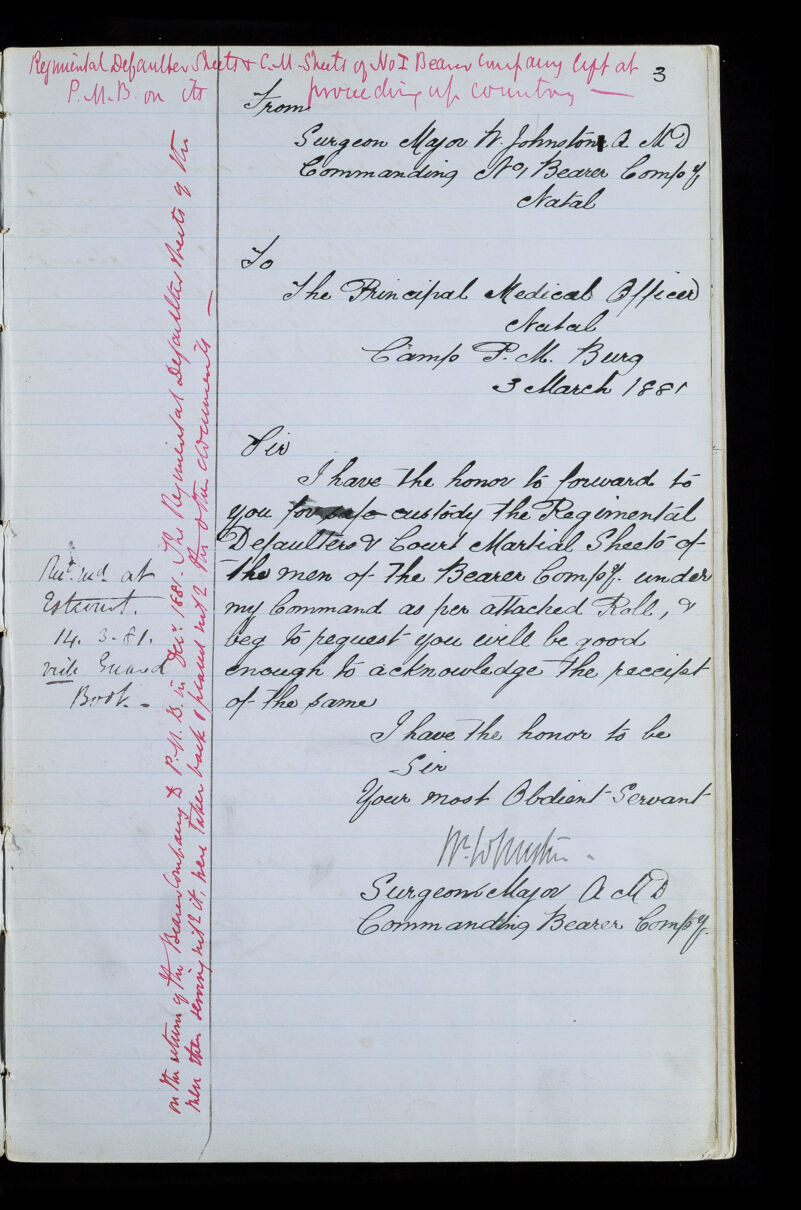 3
Regimental Defaulter Sheets & C.M. Sheets of No I Bearer Company left at
P.M.B. on its proceeding up country —
From
Surgeon Major W. Johnston A M D
Commanding No 1 Bearer Compy
Natal
To
The Principal Medical Officer
Natal
Camp P. M. Burg
3 March 1881
Sir
I have the honor to forward to
you for safe custody the Regimental
Defaulters & Court Martial Sheets of
the men of the Bearer Compy. under
my Command as per attached Roll, &
beg to request you will be good
enough to acknowledge the receipt
of the same
I have the honor to be
Sir
Your most Obdient Servant
Wm Johnston.
Surgeon Major A M D
Commanding Bearer Compy.
at
Estcourt.
14. 3. 81.
vide Guard
Book. -
on the return of the Bearer Company to P.M.B. in Decr. 1881. The Regimental Defaulter sheets of the
men then serving with it, were taken back & placed with the other documents —